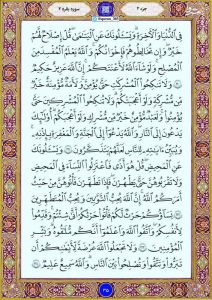 جزء ۲
سوره بقره ۲
فِي الدُّنْيَا وَالْآخِرَةِ وَيَسْأَلُونَكَ عَنِ الْيَتَامَىٰ قُلْ إِصْلَاحٌ لَهُمْ
خَيْرٌ وَإِنْ تُخَالِطُوهُمْ فَإِخْوَانُكُمْ وَاللَّهُ يَعْلَمُ الْمُفْسِدَ مِنَ
الْمُصْلِحِ وَلَوْ شَاءَ اللَّهُ لَأَعْنَتَكُمْ إِنَّ اللَّهَ عَزِيزٌ حَكِيمٌ
وَلَا تَنْكِحُوا الْمُشْرِكَاتِ حَتَّىٰ يُؤْمِنَّ وَلَأَمَةٌ مُؤْمِنَةٌ خَيْرٌ
مِنْ مُشْرِكَةٍ وَلَوْ أَعْجَبَتْكُمْ وَلَا تُنْكِحُوا الْمُشْرِكِينَ حَتَّىٰ
يُؤْمِنُوا وَلَعَبْدٌ مُؤْمِنٌ خَيْرٌ مِنْ مُشْرِكٍ وَلَوْ أَعْجَبَكُمْ أُولَٰئِكَ
يَدْعُونَ إِلَى النَّارِ وَاللَّهُ يَدْعُو إِلَى الْجَنَّةِ وَالْمَغْفِرَةِ بِإِذْنِهِ
وَيُبَيِّنُ آيَاتِهِ لِلنَّاسِ لَعَلَّهُمْ يَتَذَكَّرُونَ وَيَسْأَلُونَكَ
عَنِ الْمَحِيضِ قُلْ هُوَ أَذًى فَاعْتَزِلُوا النِّسَاءَ فِي الْمَحِيضِ
وَلَا تَقْرَبُوهُنَّ حَتَّىٰ يَطْهُرْنَ فَإِذَا تَطَهَّرْنَ فَأْتُوهُنَّ مِنْ حَيْثُ
أَمَرَكُمُ اللَّهُ إِنَّ اللَّهَ يُحِبُّ التَّوَّابِينَ وَيُحِبُّ الْمُتَطَهِّرِينَ
نِسَاؤُكُمْ حَرْثٌ لَكُمْ فَأْتُوا حَرْثَكُمْ أَنَّىٰ شِئْتُمْ وَقَدِّمُوا
لِأَنْفُسِكُمْ وَاتَّقُوا اللَّهَ وَاعْلَمُوا أَنَّكُمْ مُلَاقُوهُ وَبَشِّرِ
الْمُؤْمِنِينَ وَلَا تَجْعَلُوا اللَّهَ عُرْضَةً لِأَيْمَانِكُمْ أَنْ
تَبَرُّوا وَتَتَّقُوا وَتُصْلِحُوا بَيْنَ النَّاسِ وَاللَّهُ سَمِيعٌ عَلِيمٌ
۳۵